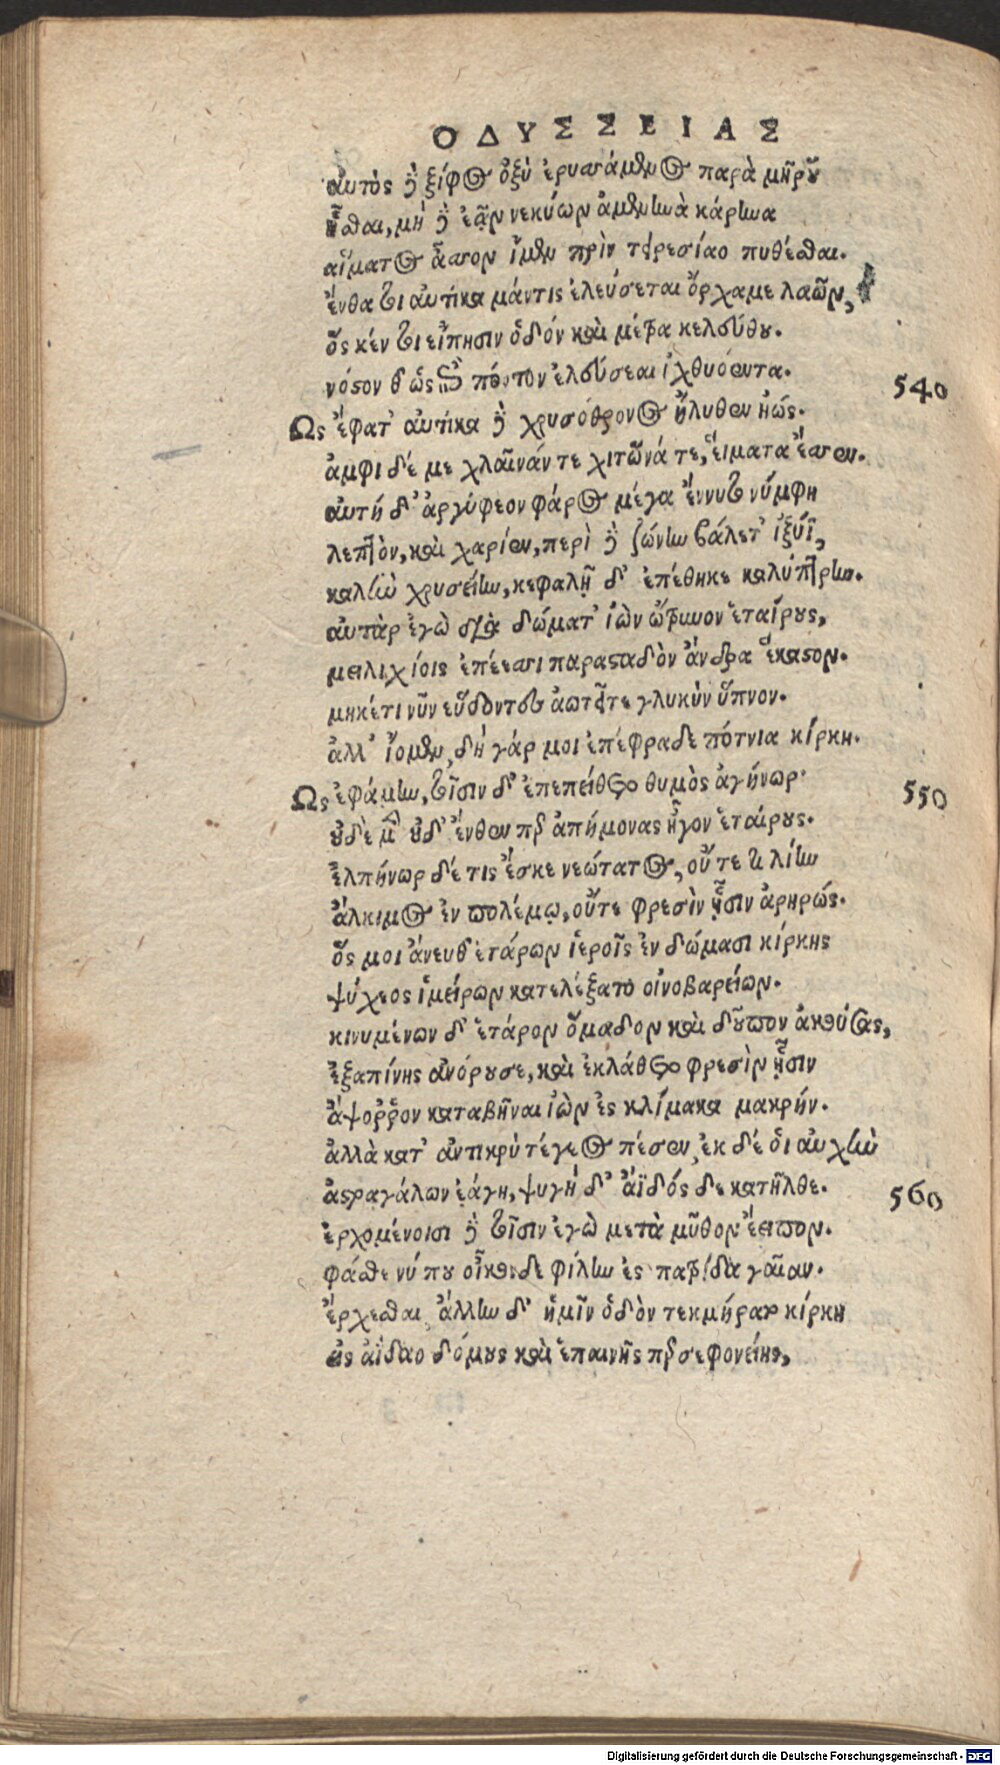 ΟΔΥΣΣΕΙΑΣ
αὐτὸς δὲ ξίφος ὀξὺ ἐρυσσάμενος παρὰ μηροῦ
ἧσθαι, μὴ δὲ ἐᾷν νεκύων ἀμενηνὰ κάρηνα
αἵματος ἆσσον ἴμεν πρὶν τειρεσίαο πυθέσθαι.
ἔνθά τοι αὐτίκα μάντις ἐλεύσεται ὄρχαμε λαῶν,
ὅς κέν τοι εἴπησιν ὁδὸν καὶ μέτρα κελεύθου.
νόστον θ' ὡς ἐπὶ πόντον ἐλεύσεαι ἰχθυόεντα.
540
Ως ἔφατ' αὐτίκα δὲ χρυσόθρονος ἤλυθεν ἠώς.
ἀμφὶ δέ με χλαῖνάν τε χιτῶνά τε, εἵματα ἕσσεν.
αὐτὴ δ' ἀργύφεον φάρος μέγα ἕννυτο νύμφη
λεπτὸν, καὶ χαρίεν, περὶ δὲ ζώνην βάλετ' ἰξύϊ,
καλὴν χρυσείην, κεφαλῇ δ' ἐπέθηκε καλύπτρην.
αὐτὰρ ἐγὼ διὰ δώματ' ἰὼν ὤτρυνον ἑταίρους,
μειλιχίοις ἐπέεσσι παρασταδὸν ἄνδρα ἕκαστον.
μηκέτι νῦν εὕδοντες ἀωτεῖτε γλυκὺν ὕπνον.
ἀλλ' ἴομεν, δὴ γάρ μοι ἐπέφραδε πότνια κίρκη.
Ως ἐφάμην, τοῖσιν δ' ἐπεπείθετο θυμὸς ἀγήνωρ.
550
οὐδὲ μὲν οὐδ' ἔνθεν περ ἀπήμονας ἦγον ἑταίρους.
ἐλπήνωρ δέ τις ἔσκε νεώτατος, οὔτε τι λίην
ἄλκιμος ἐν πολέμῳ, οὔτε φρεσὶν ᾗσιν ἀρηρώς.
ὅς μοι ἄνευθ' ἑτάρων ἱεροῖς ἐν δώμασι κίρκης
ψύχεος ἱμείρων κατελέξατο οἰνοβαρείων.
κινυμένων δ' ἑτάρον ὅμαδον καὶ δοῦπον ἀκούσας,
ἐξαπίνης ἀνόρουσε, καὶ ἐκλάθετο φρεσὶν ᾗσιν
ἄψοῤῥον καταβῆναι ἰὼν ἐς κλίμακα μακρήν.
ἀλλὰ κατ' ἀντικρὺ τέγεος πέσεν, ἐκ δέ οἱ αὐχὴν
ἀστραγάλων ἐάγη, ψυχὴ δ' ἄϊδός δε κατῆλθε.
560
ἐρχομένοισι δὲ τοῖσιν ἐγὼ μετὰ μῦθον ἔειπον.
φάσθε νύ που οἶκόνδε φίλην ἐς πατρίδα γαῖαν.
ἔρχεσθαι, ἄλλην δ' ἡμῖν ὁδὸν τεκμήρατο κίρκη
εἰς ἀΐδαο δόμους καὶ ἐπαινῆς περσεφονείης,
Digitalisierung gefördert durch die Deutsche Forschungsgemeinschaft - DFG